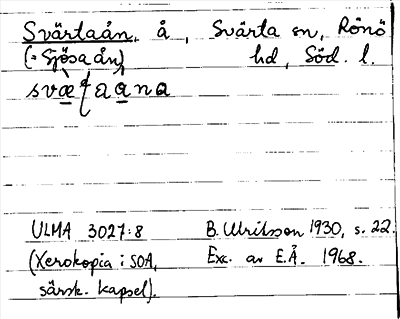 Svärtaån, å, Svärta sn, Rönö
(= Sjösaån) hd, Söd. l.
ULMA 3027:8 B. Ulrilsson 1930, s. 22.
(Xerokopia i SOA, Exc. av E.Å. 1968.
särsk. kapsel).